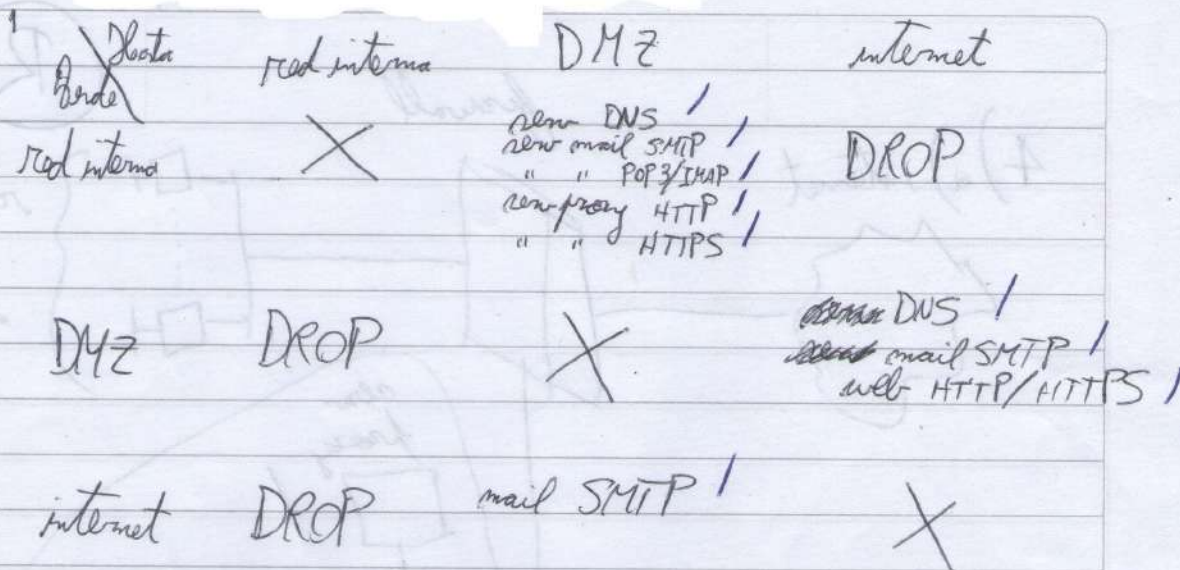 1
Hasta
Desde
red interna
DMZ
internet
red interna
serv DNS
serv mail SMTP
" " POP3/IMAP
serv proxy HTTP
" " HTTPS
DROP
DMZ
DROP
DNS
mail SMTP
web HTTP/HTTPS
internet
DROP
mail SMTP